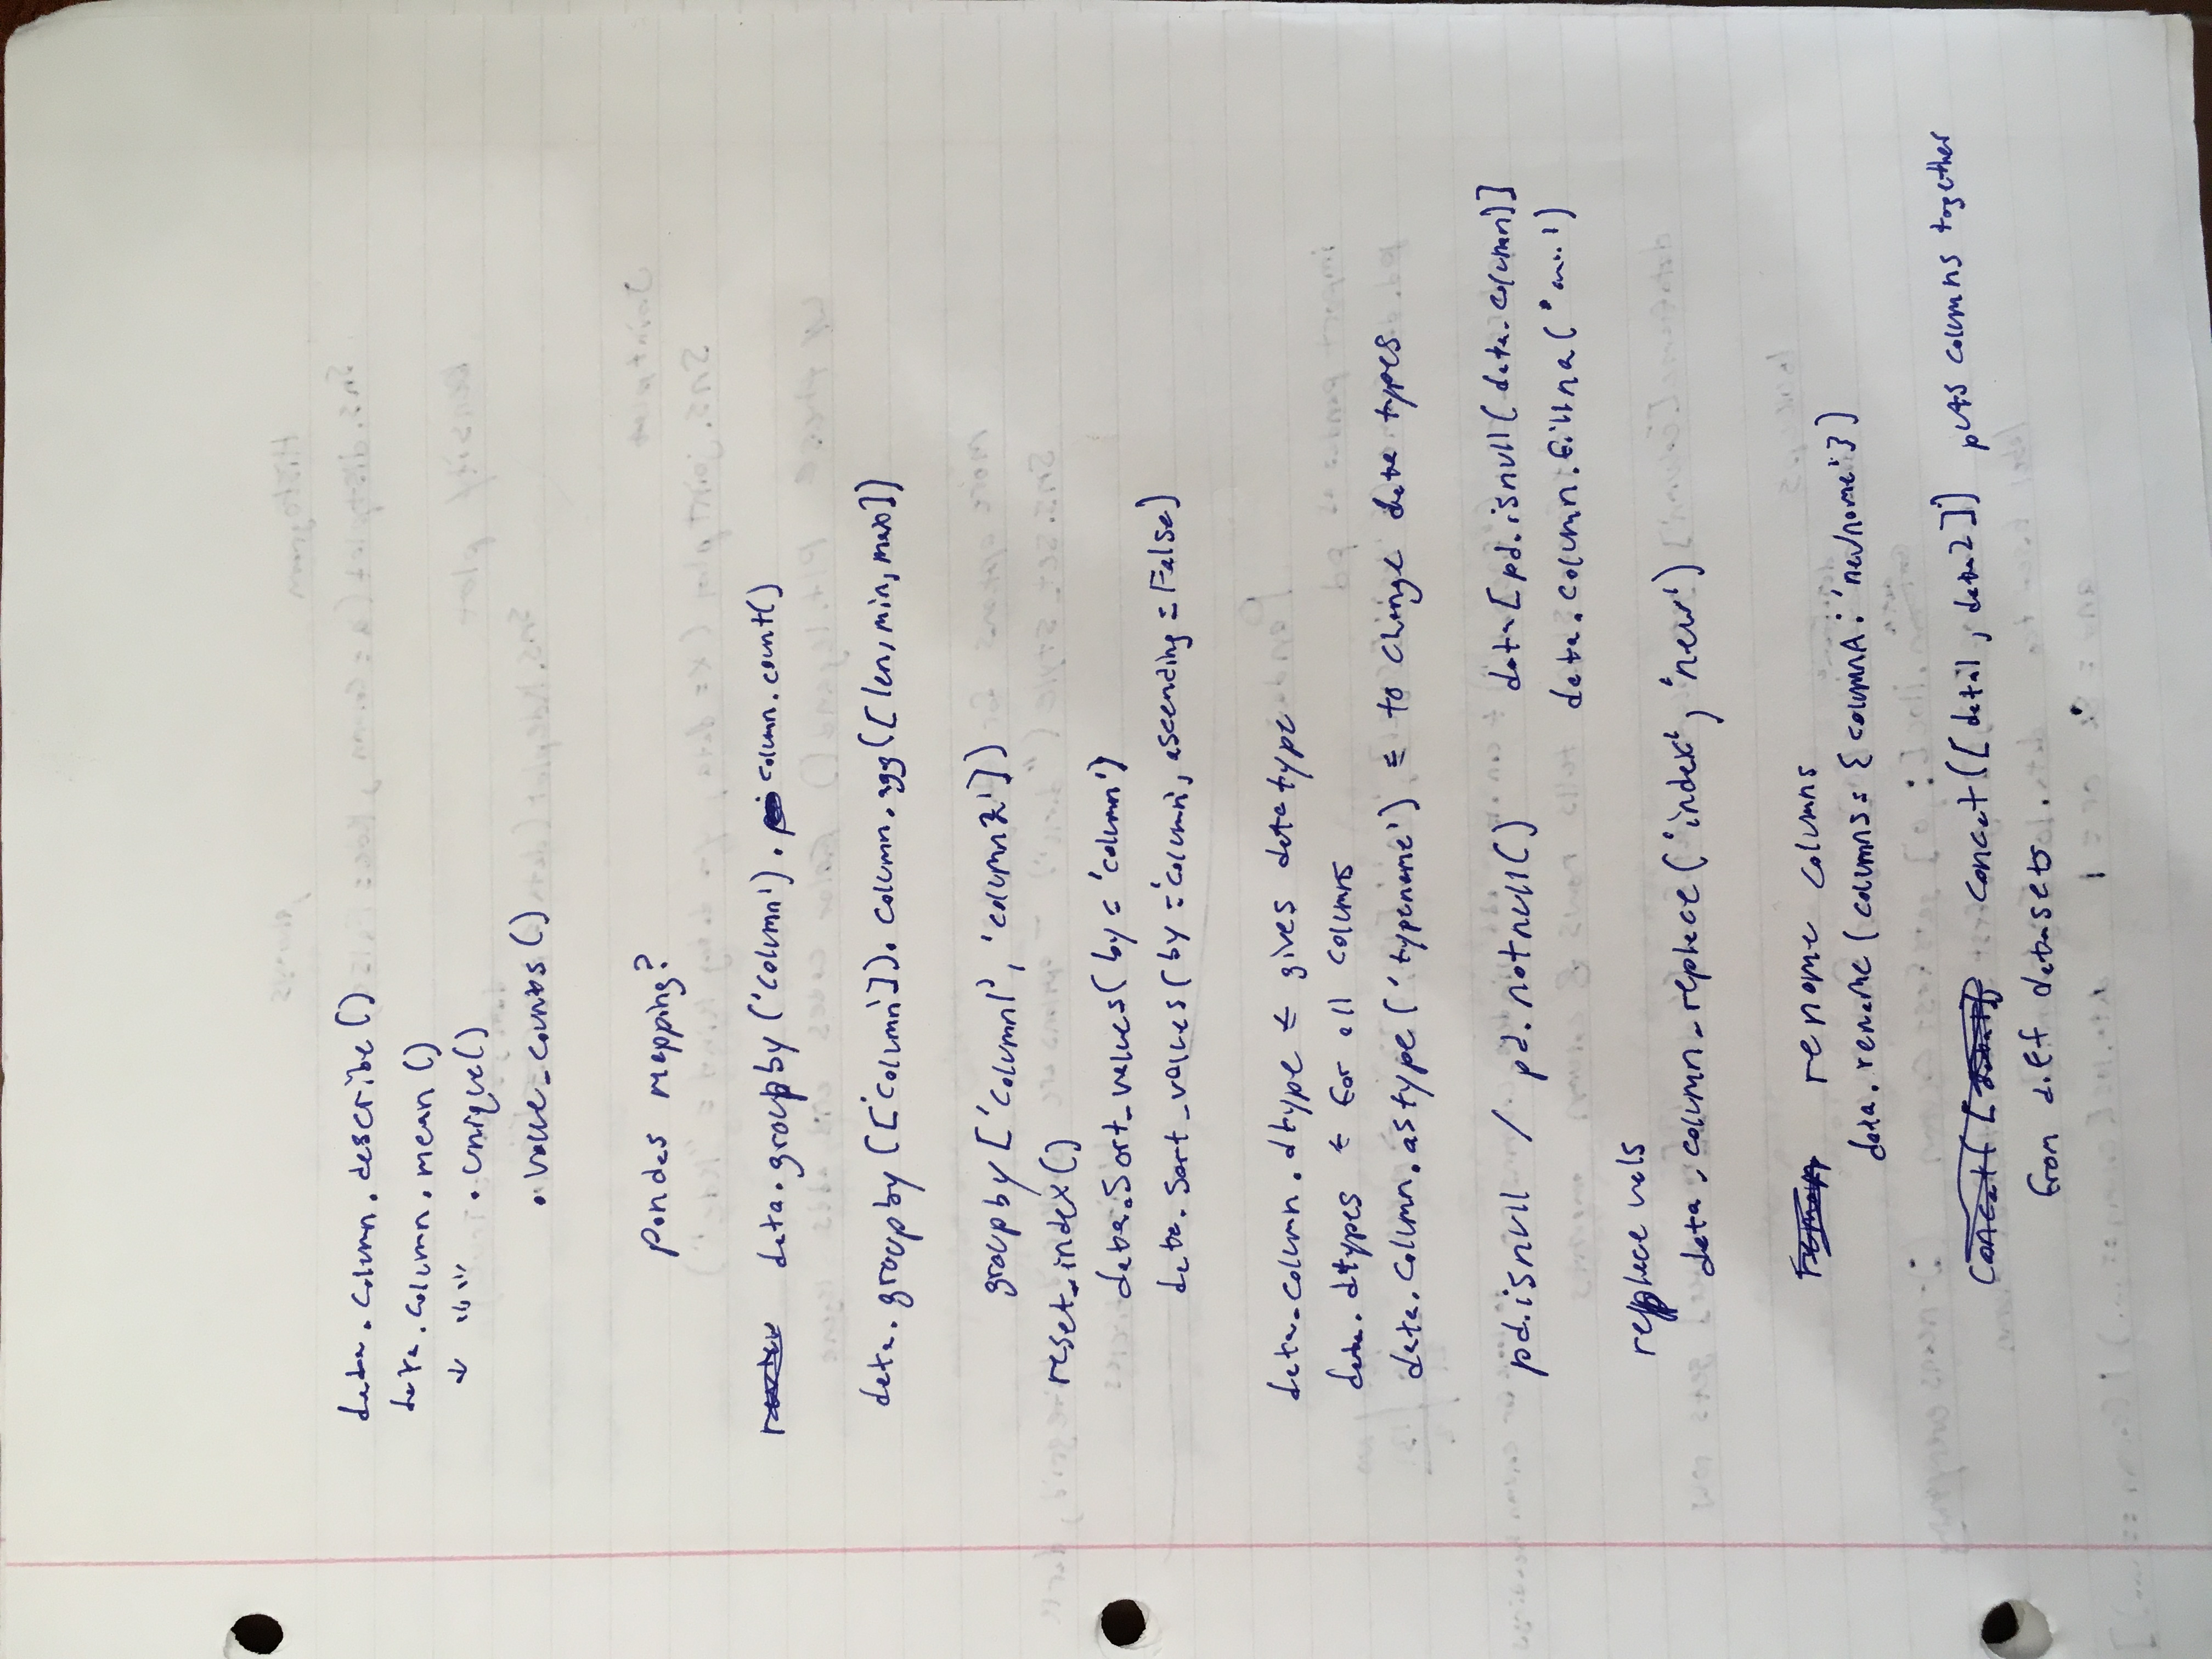 data.column.describe()
data.column.mean()
↓ "" "" .unique()
.value_counts()
Pandas mapping?
review data.groupby('column').column.count()
data.groupby(['column']).column.agg([len,min,max])
groupby['column1', 'column2'])
reset_index()
data.sort_values(by='column')
data.sort_values(by='column', ascending=False)
data.column.dtype ← gives datatype
data.dtypes ← for all columns
data.column.astype('typename') ← to change data types
pd.isnull / pd.notnull() data[pd.isnull(data.column)]
data.column.fillna('    ')
replace vals
data.column.replace('index', 'new')
rename columns
data.rename(columns={columnA:'newname'})
concat([ concat([data1, data2]) puts columns together
from diff datasets.